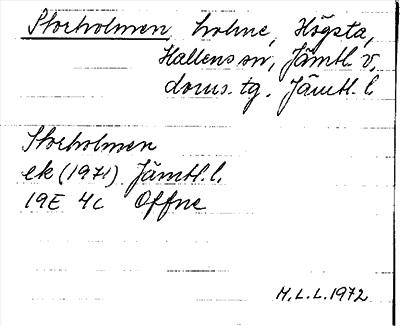 Storholmen, holme, Högsta,
Hallens sn, Jämtl. v.
doms.tg. Jämtl. l
Storholmen
ek (1971) Jämtl. l.
19E 4c Offne
M.L.L. 1972